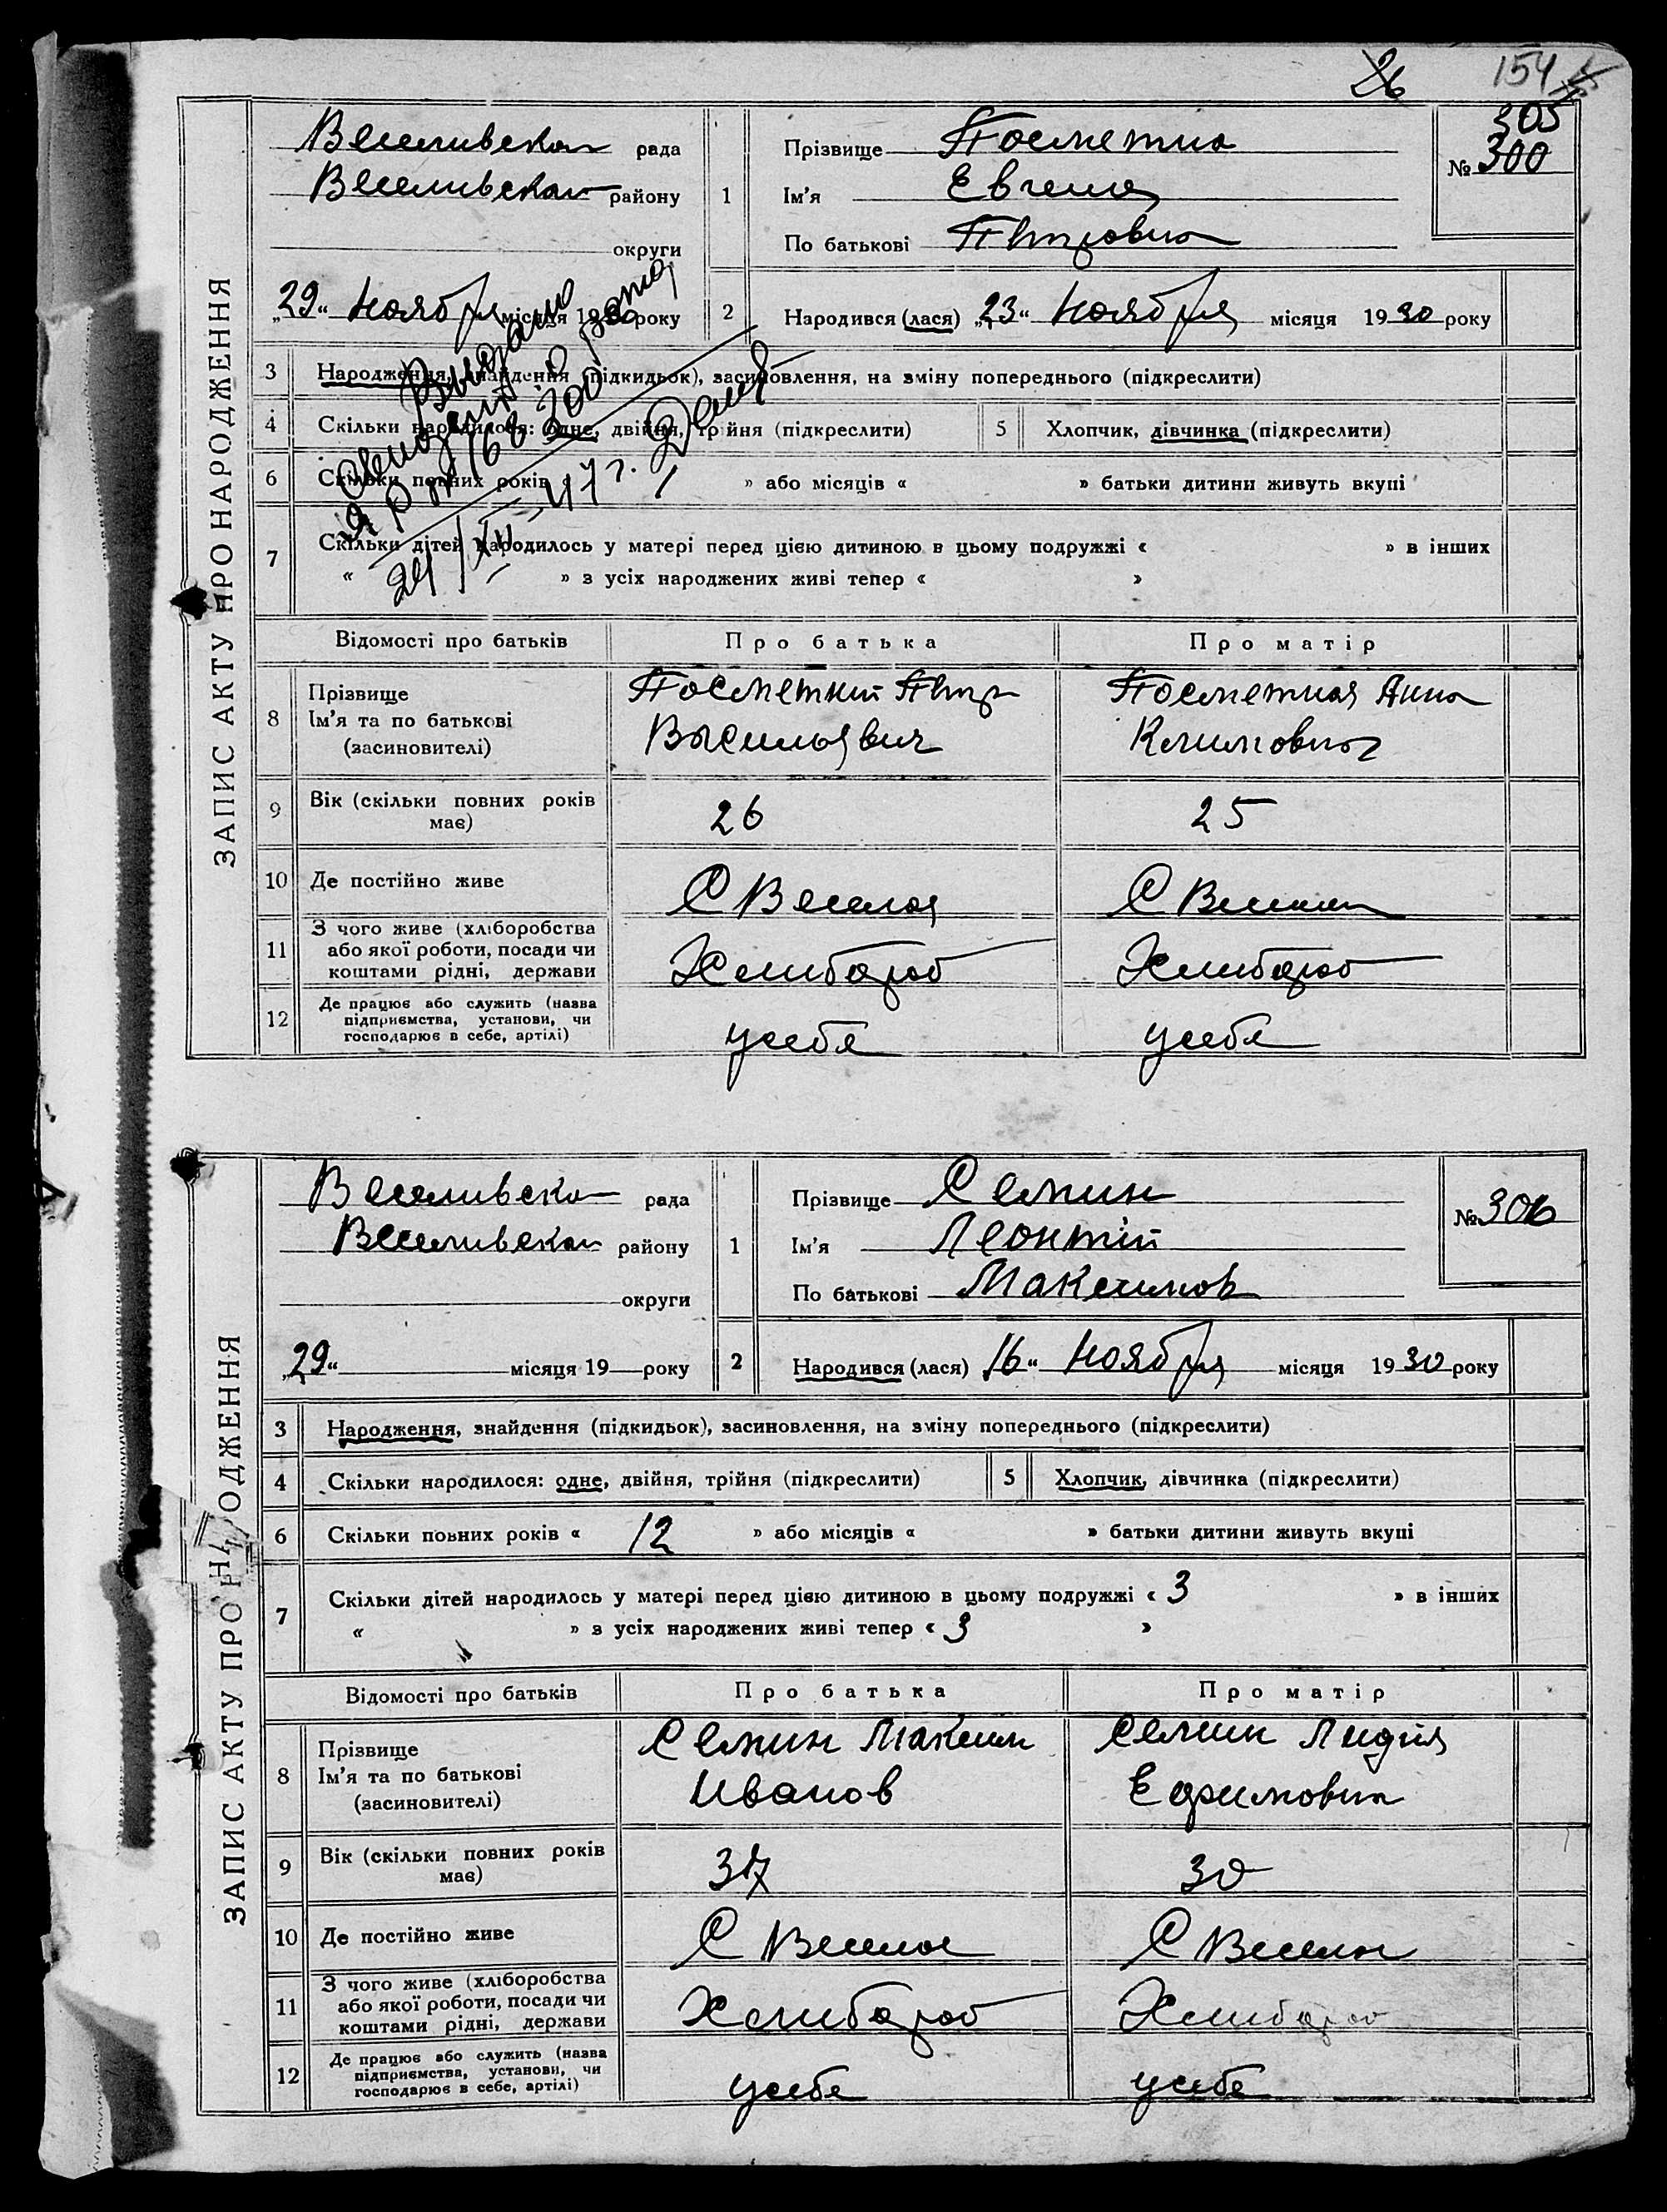 26 154
ЗАПИС АКТУ ПРО НАРОДЖЕННЯ
Веселивска рада
Веселивска району
округи
„29“ Ноября місяця 1930 року
1
Прізвище Посметна
Ім'я Евгения
По батькові Петровна
305
№ 300
2
Народився (лася) „23“ Ноября місяця 1930 року
3 Народження, знайдення (підкидьок), засиновлення, на зміну попереднього (підкреслити)
4 Скільки народилося: одне, двійня, трійня (підкреслити)
5 Хлопчик, дівчинка (підкреслити)
6 Скільки повних років » або місяців « » батьки дитини живуть вкупі
7 Скільки дітей народилось у матері перед цією дитиною в цьому подружжі « » в інших
« » з усіх народжених живі тепер « »
Выдано
24/XII-47 г.
Відомості про батьків Про батька Про матір
8 Прізвище
Ім'я та по батькові
(засиновителі)
Посметний Петр
Васильевич
Посметная Анна
Климовна
9 Вік (скільки повних років
має)
26 25
10 Де постійно живе С Веселое С Веселое
11 З чого живе (хліборобства
або якої роботи, посади чи
коштами рідні, держави
Хлибороб Хлибороб
12 Де працює або служить (назва
підприємства, установи, чи
господарює в себе, артілі)
усебе усебе
ЗАПИС АКТУ ПРО НАРОДЖЕННЯ
Веселивска рада
Веселивска району
округи
„29“ місяця 19 року
1
Прізвище Семин
Ім'я Леонтий
По батькові Максимов
№ 306
2
Народився (лася) 16“ Ноября місяця 1930 року
3 Народження, знайдення (підкидьок), засиновлення, на зміну попереднього (підкреслити)
4 Скільки народилося: одне, двійня, трійня (підкреслити)
5 Хлопчик, дівчинка (підкреслити)
6 Скільки повних років « 12 » або місяців « » батьки дитини живуть вкупі
7 Скільки дітей народилось у матері перед цією дитиною в цьому подружжі « 3 » в інших
« » з усіх народжених живі тепер « 3 »
Відомості про батьків Про батька Про матір
8 Прізвище
Ім'я та по батькові
(засиновителі)
Семин Максим
Иванов
Семин Лидия
Ефимовна
9 Вік (скільки повних років
має)
37 30
10 Де постійно живе С Веселое С Веселое
11 З чого живе (хліборобства
або якої роботи, посади чи
коштами рідні, держави
Хлибороб Хлибороб
12 Де працює або служить (назва
підприємства, установи, чи
господарює в себе, артілі)
усебе усебе